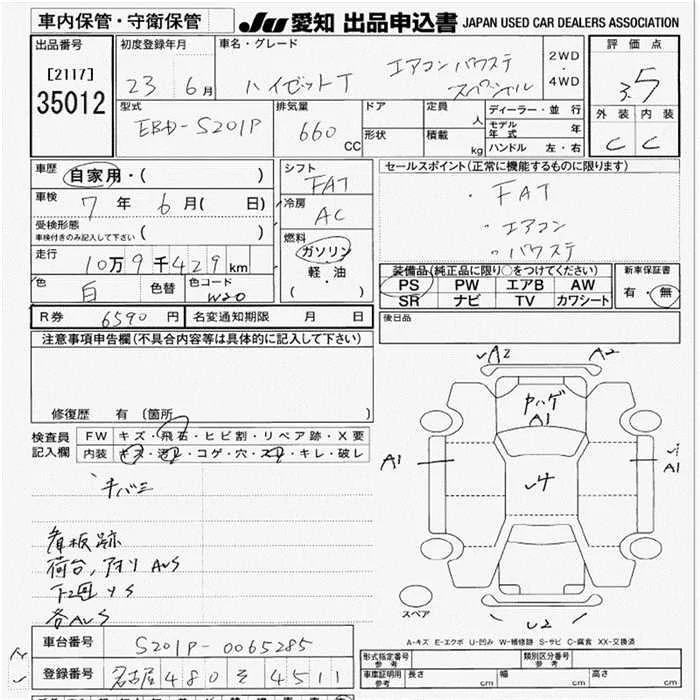 車内保管・守衛保管
JU 愛知 出品申込書 JAPAN USED CAR DEALERS ASSOCIATION
出品番号
[2117]
35012
初度登録年月
23 6月
車名・グレード
ハイゼットT
エアコン パワステ
スペシャル
2WD
・
4WD
評価点
3.5
外装 内装
C C
型式
EBD-S201P
排気量
660 CC
ドア
形状
定員 人
積載 kg
ディーラー・並行
モデル年式 年
ハンドル 左・右
車歴
自家用・( )
車検
7年 6月( 日)
受検形態
車検付きのみ記入して下さい ( )
走行
10万9千429km
色
白
色替
色コード
W20
シフト
FAT
冷房
AC
燃料
ガソリン
・
軽油
( )
セールスポイント(正常に機能するものに限ります)
・FAT
・エアコン
・パワステ
装備品(純正品に限り○をつけてください)
PS PW エアB AW
SR ナビ TV カワシート
新車保証書
有・無
R券 6590円 名変通知期限 月 日
後日品
注意事項申告欄(不具合内容等は具体的に記入して下さい)
修復歴 有 (箇所 )
検査員
記入欄
FW キズ・飛石・ヒビ割・リペア跡・X要
内装 キズ・汚レ・コゲ・穴・スレ・キレ・破レ
キバミ
看板跡
荷台,アオリ AUS
下回 YS
各AUS
A2 A2
ヤハゲ
A1
A1
A1
4
U2
スペア
A-キズ E-エクボ U-凹み W-補修跡 S-サビ C-腐食 XX-交換済
車台番号 S201P-0065285
登録番号 名古屋 480 そ 4511
形式指定番号
参考
類別区分番号
参考
車庫証明用
参考
長さ cm 幅 cm 高さ cm